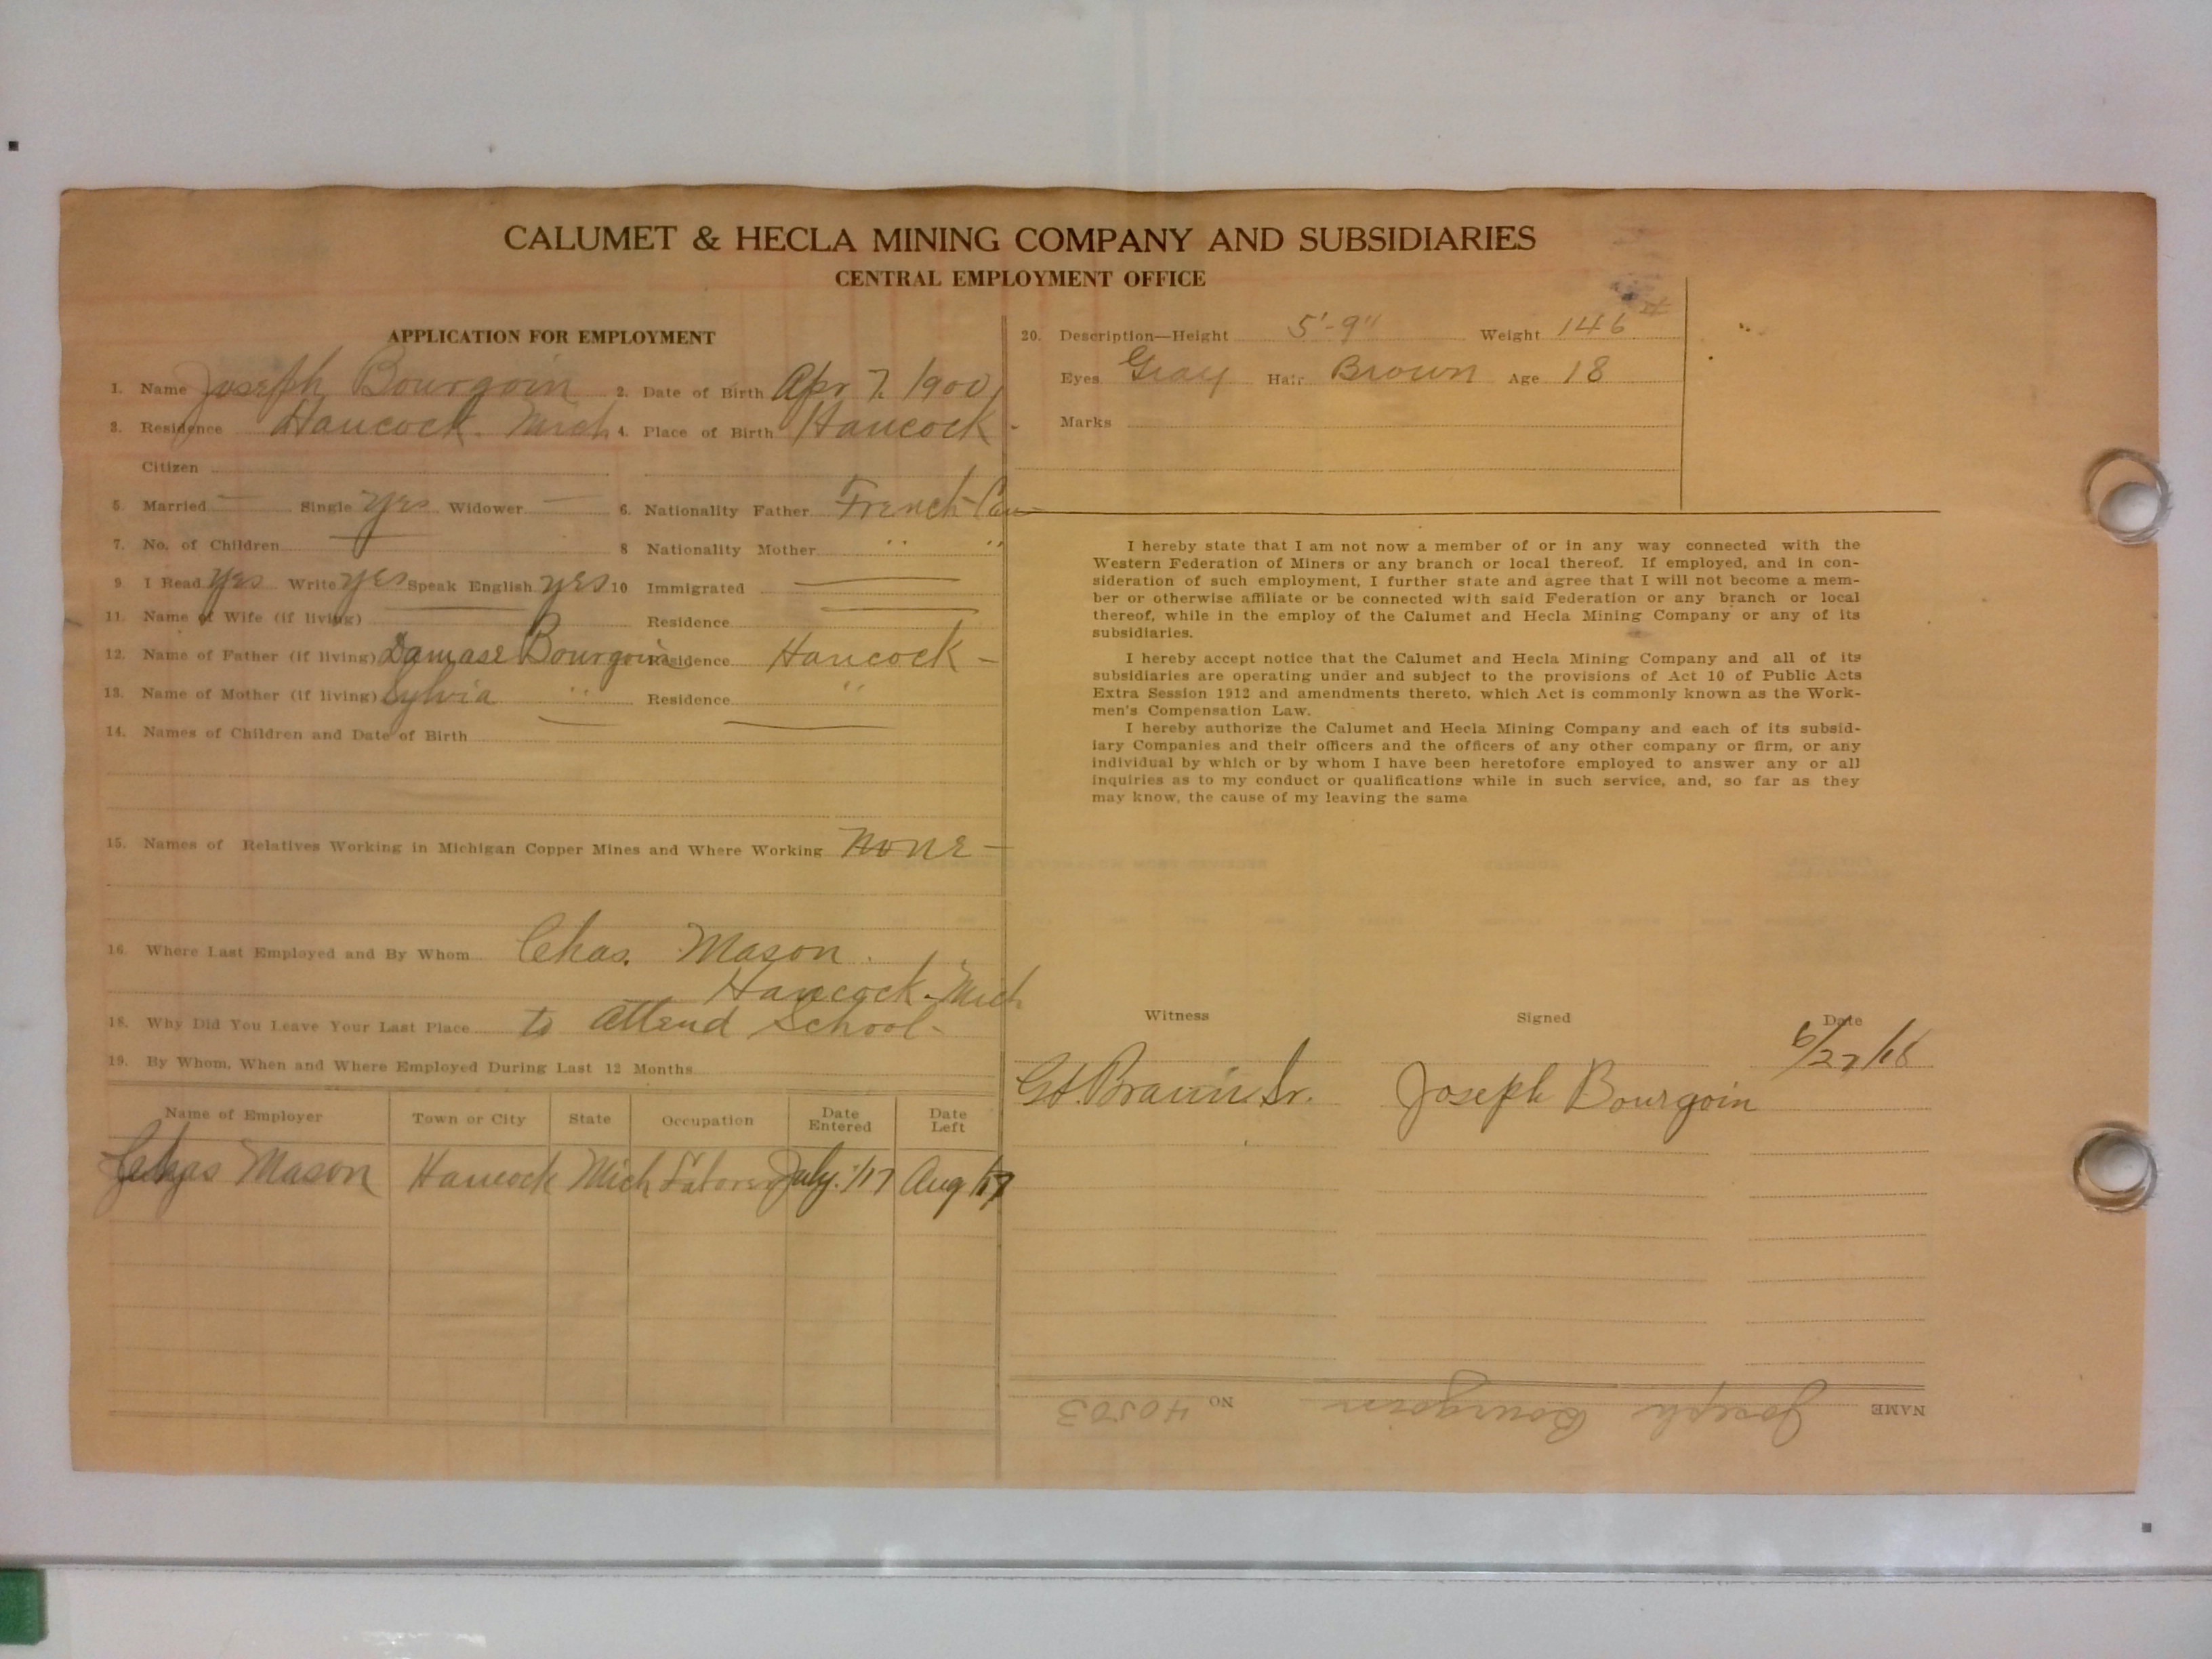 CALUMET & HECLA MINING COMPANY AND SUBSIDIARIES
CENTRAL EMPLOYMENT OFFICE
APPLICATION FOR EMPLOYMENT
1. Name Joseph Bourgoin 2. Date of Birth Apr 7, 1900
3. Residence Hancock Mich 4. Place of Birth Hancock -
Citizen
5. Married — Single yes Widower — 6. Nationality Father French-Can
7. No. of Children — 8 Nationality Mother " "
9. I Read yes Write yes Speak English yes 10 Immigrated —
11. Name of Wife (if living) — Residence —
12. Name of Father (if living) Damase Bourgoin Residence Hancock -
13. Name of Mother (if living) Sylvia " Residence "
14. Names of Children and Date of Birth — —
15. Names of Relatives Working in Michigan Copper Mines and Where Working None -
16. Where Last Employed and By Whom Chas. Mason.
Hancock - Mich
18. Why Did You Leave Your Last Place to attend School -
19. By Whom, When and Where Employed During Last 12 Months
Name of Employer Town or City State Occupation Date Entered Date Left
Chas Mason Hancock Mich Laborer July /17 Aug /17
20. Description—Height 5'-9" Weight 146
Eyes Gray Hair Brown Age 18
Marks
I hereby state that I am not now a member of or in any way connected with the
Western Federation of Miners or any branch or local thereof. If employed, and in con-
sideration of such employment, I further state and agree that I will not become a mem-
ber or otherwise affiliate or be connected with said Federation or any branch or local
thereof, while in the employ of the Calumet and Hecla Mining Company or any of its
subsidiaries.
I hereby accept notice that the Calumet and Hecla Mining Company and all of its
subsidiaries are operating under and subject to the provisions of Act 10 of Public Acts
Extra Session 1912 and amendments thereto, which Act is commonly known as the Work-
men's Compensation Law.
I hereby authorize the Calumet and Hecla Mining Company and each of its subsid-
iary Companies and their officers and the officers of any other company or firm, or any
individual by which or by whom I have been heretofore employed to answer any or all
inquiries as to my conduct or qualifications while in such service, and, so far as they
may know, the cause of my leaving the same
Witness Signed Date
6/27/18
Sr. Joseph Bourgoin
NAME Joseph Bourgoin NO 40503